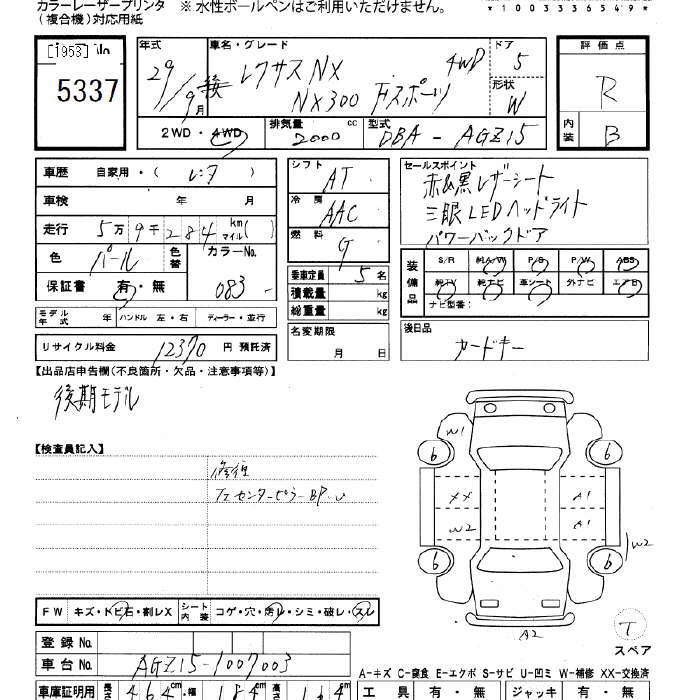 カラーレーザープリンタ ※ 水性ボールペンはご利用いただけません。
(複合機)対応用紙
*1003336549*
[1953] No
5337
年式 29/9月 後
車名・グレード レクサスNX 4WD
NX300 Fスポーツ
ドア 5
形状 W
2WD・4WD
排気量 2000 cc
型式 DBA - AGZ15
評価点 R
内装 B
車歴 自家用・( レンタ )
車検 年 月
走行 5万9千284 km マイル( )
色 パール 色番 カラーNo. 083
保証書 有・無
モデル年式 年 ハンドル 左・右 ディーラー・並行
リサイクル料金 12370 円 預託済
シフト AT
冷房 AAC
燃料 G
乗車定員 5名
積載量 kg
総重量 kg
名変期限 月 日
セールスポイント
赤&黒レザーシート
三眼LEDヘッドライト
パワーバックドア
装備品 S/R 純A/W P/S P/W ABS
純TV 純ナビ 革シート 外ナビ エアB
ナビ型番:
後日品
カードキー
【出品店申告欄(不良箇所・欠品・注意事項等)】
後期モデル
【検査員記入】
修復
フェ センターピラー BP
W1
6 6
XX A1
W2 A1
W2
6 6
A2
T
スペア
FW キズ・トビ石・割レX シート内装 コゲ・穴・汚レ・シミ・破レ・スレ
登録 No.
車台 No. AGZ15-1007003
A-キズ C-腐食 E-エクボ S-サビ U-凹ミ W-補修 XX-交換済
車庫証明用 長さ 464cm・幅 184cm 高さ
工具 有・無 ジャッキ 有・無